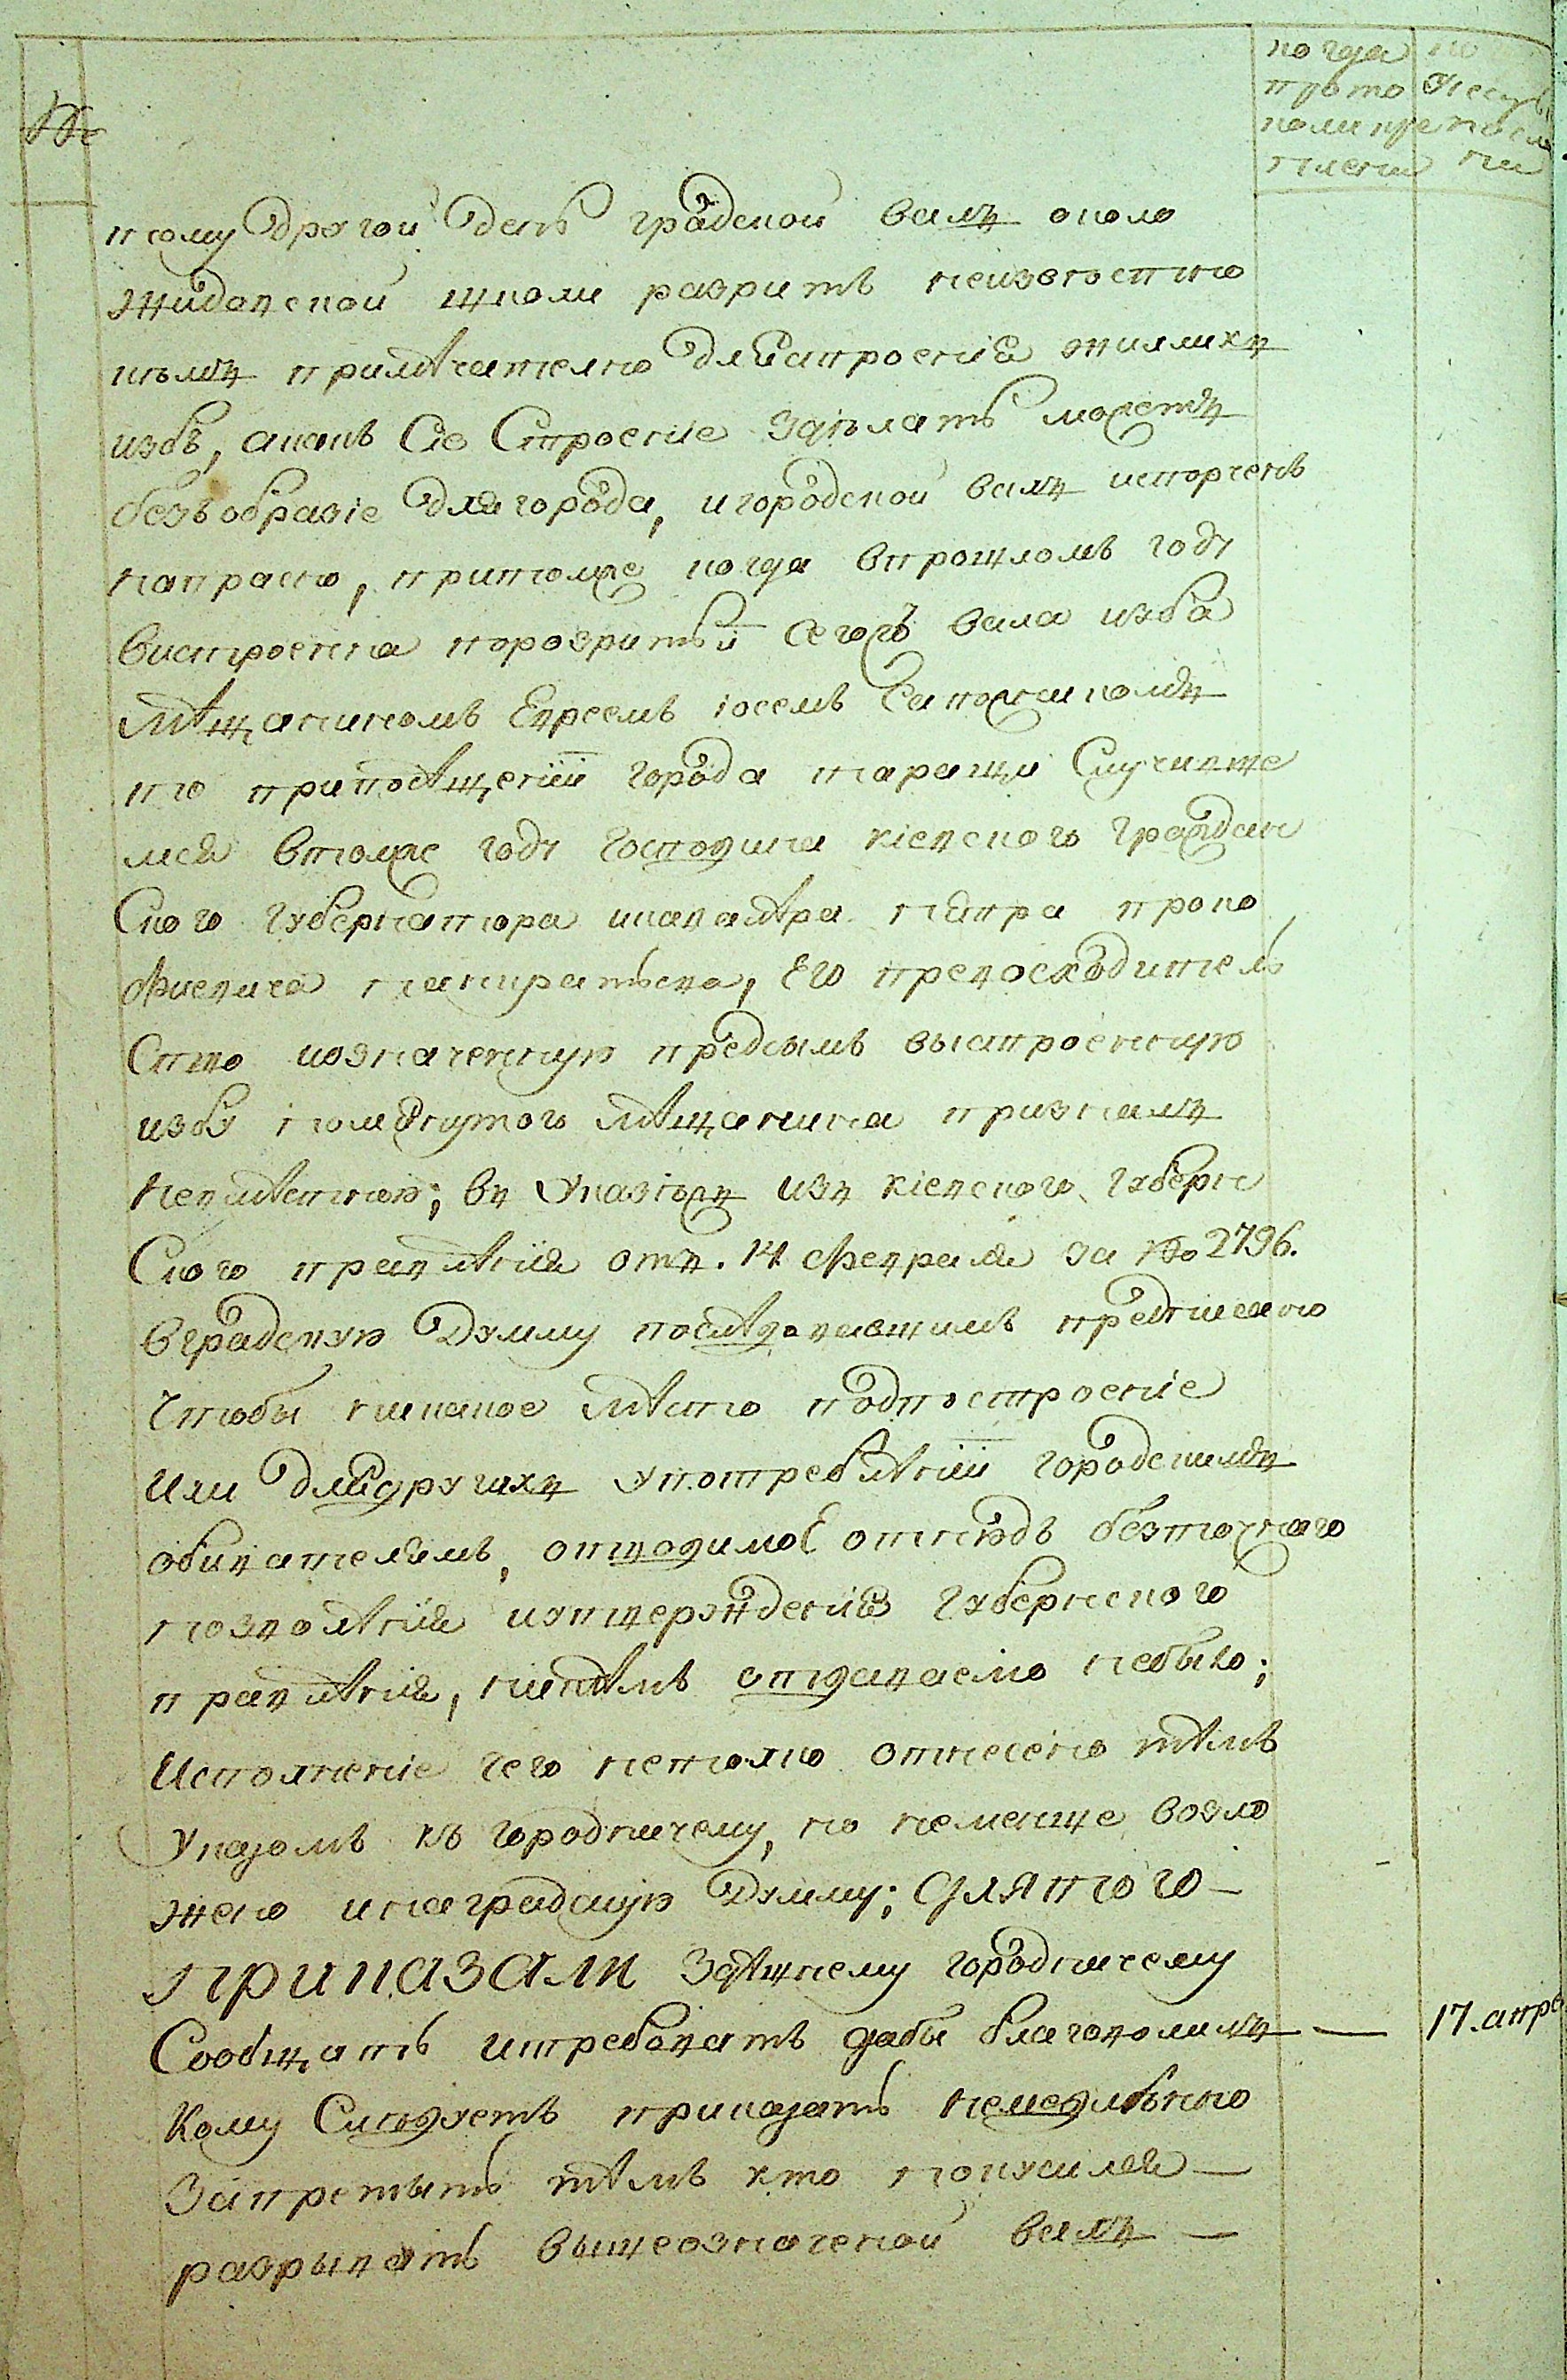 №
когда по
что Несув
поли чре после
плени ни
тому другой день градской валъ около
жидовской школи разритъ неизвестно
кѣмъ примѣчателно для строенія жилихъ
избъ, а какъ Сіе Строеніе здѣлать можетъ
безъобразіе для города, и городской валъ испорченъ
напрасно, притомже когда впрошломъ году
вистроенна порозритьй сегожъ вала изба
мѣщаниномъ Евреемъ іосемъ Сапожникомъ
то припосѣщеніи города таращи Случивше
мся втомже году господина кіевского граждан
ского губернатора и кавалѣра петра проко
фиевича панкратьева, Его превосходитель
Ство изозначенную предсымъ выстроенную
избу помянутого мѣщанина призналъ
невмѣстною; въ Указѣжъ изъ кіевского губерн
ского правлѣнія отъ. 14 февраля за №2796.
вградскую Думму послѣдовавшимъ предписано
чтобы никакое мѣсто подпостроеніе
или для другихъ употреблѣніи городскимъ
обивателямъ, отводимоЕ отнюдъ безточнаго
позволѣнія иутверждения губернского
правлѣнія, никѣмъ отдаваемо небыло;
Исполненіе чего нетолко отнесено тѣмъ
Указомъ къ городничему, но неменше возло
жено и наградскую Думму; для того
приказали здѣшнему городничему
Сообщать итребовать дабы благоволилъ — 17. апре
Кому Слѣдуетъ приказать немедлѣнно
запретить тѣмъ кто покусилея
разрывать вышеозначеной валъ